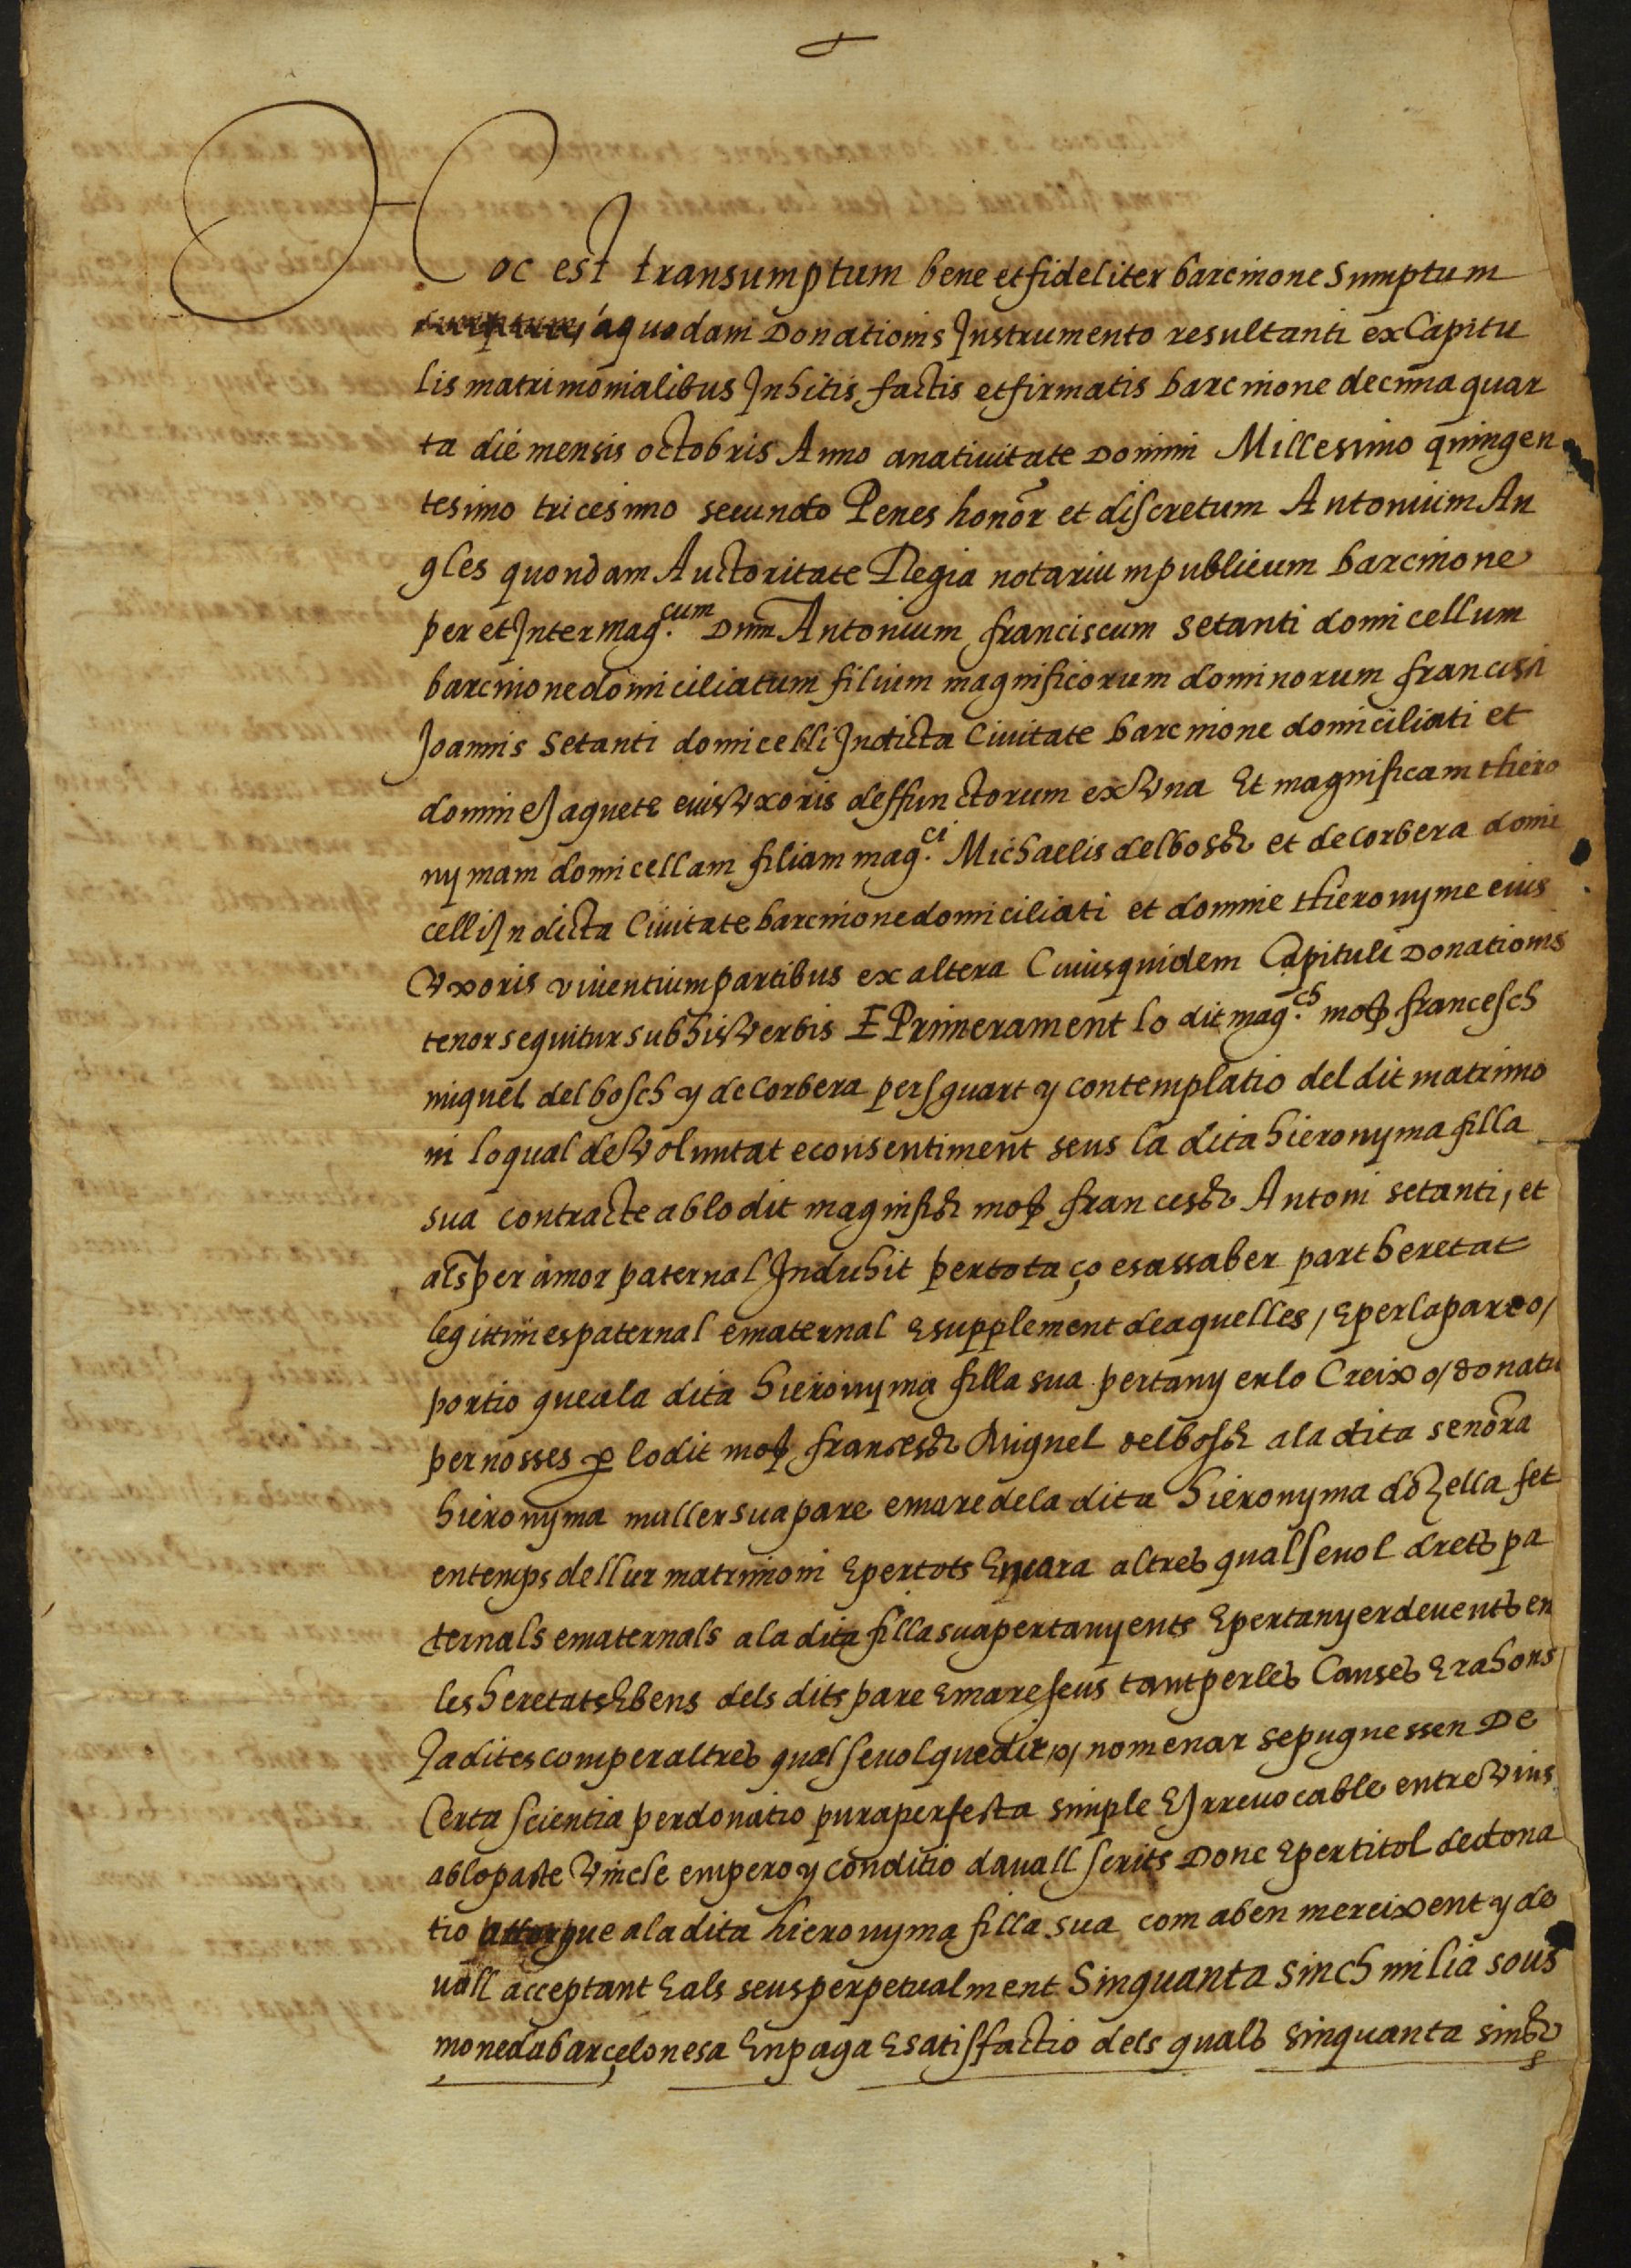 Hoc est transumptum bene et fideliter barcinone Sumptum
a quodam Donationis Instrumento resultanti ex Capitu
lis matrimonialibus Inhitis factis et firmatis barcinone decima quar
ta die mensis octobris Anno a nativitate Domini Millesimo quingen
tesimo tricesimo secundo Penes honor et discretum Antonium An
gles quondam Auctoritate Regia notarium publicum barcinone
per et Inter mag.cum Dnm Antonium franciscum setanti domicellum
barcinone domiciliatum filium magnificorum dominorum francisci
Joannis setanti domicelli In dicta Civitate barcinone domiciliati et
domine Jaquete eius Vxoris deffunctorum ex Vna Et magnificam Hiero
nymam domicellam filiam mag.ci Michaelis delbosch et de corbera domi
celli In dicta Civitate barcinone domiciliati et domine Hieronyme eius
Vxoris viuentium partibus ex altera Cuiusquidem Capituli Donationis
tenor sequitur sub his Verbis E Primerament lo dit mag.ch moss francesch
miquel del bosch y de Corbera per sguart y contemplatio del dit matrimo
ni lo qual de Voluntat e consentiment seus la dita hieronyma filla
sua contracte ab lo dit magnifich moss francesch Antoni setanti, et
als per amor paternal Induhit per tota ço es assaber part heretat
legittimes paternal e maternal E supplement de aquelles, E per la part o,
portio que a la dita hieronyma filla sua pertany en lo Creix o, donatiu
per nosses per lo dit moss francesch Miquel del bosch a la dita senora
hieronyma muller sua pare e mare de la dita hieronyma dozella fet
en temps de llur matrimoni E per tots Encara altres qualsevol drets pa
ternals e maternals a la dita filla sua pertanyents E pertanyer devents en
les heretats E bens dels dits pare E mare seus tant per les Causes E rahons
Ja dites com per altres qualsevol que dir, o, nomenar se puguessen De
Certa scientia per donatio pura perfecta simple E Irrevocable entre Vius
ab lo pacte Vincle empero y conditio davall scrits Done E per titol de dona
tio attorgue a la dita hieronyma filla sua com a ben mereixent y de
uall acceptant E als seus perpetualment Sinquanta sinch milia sous
moneda barçelonesa En paga E satisfactio dels quals sinquanta sinch